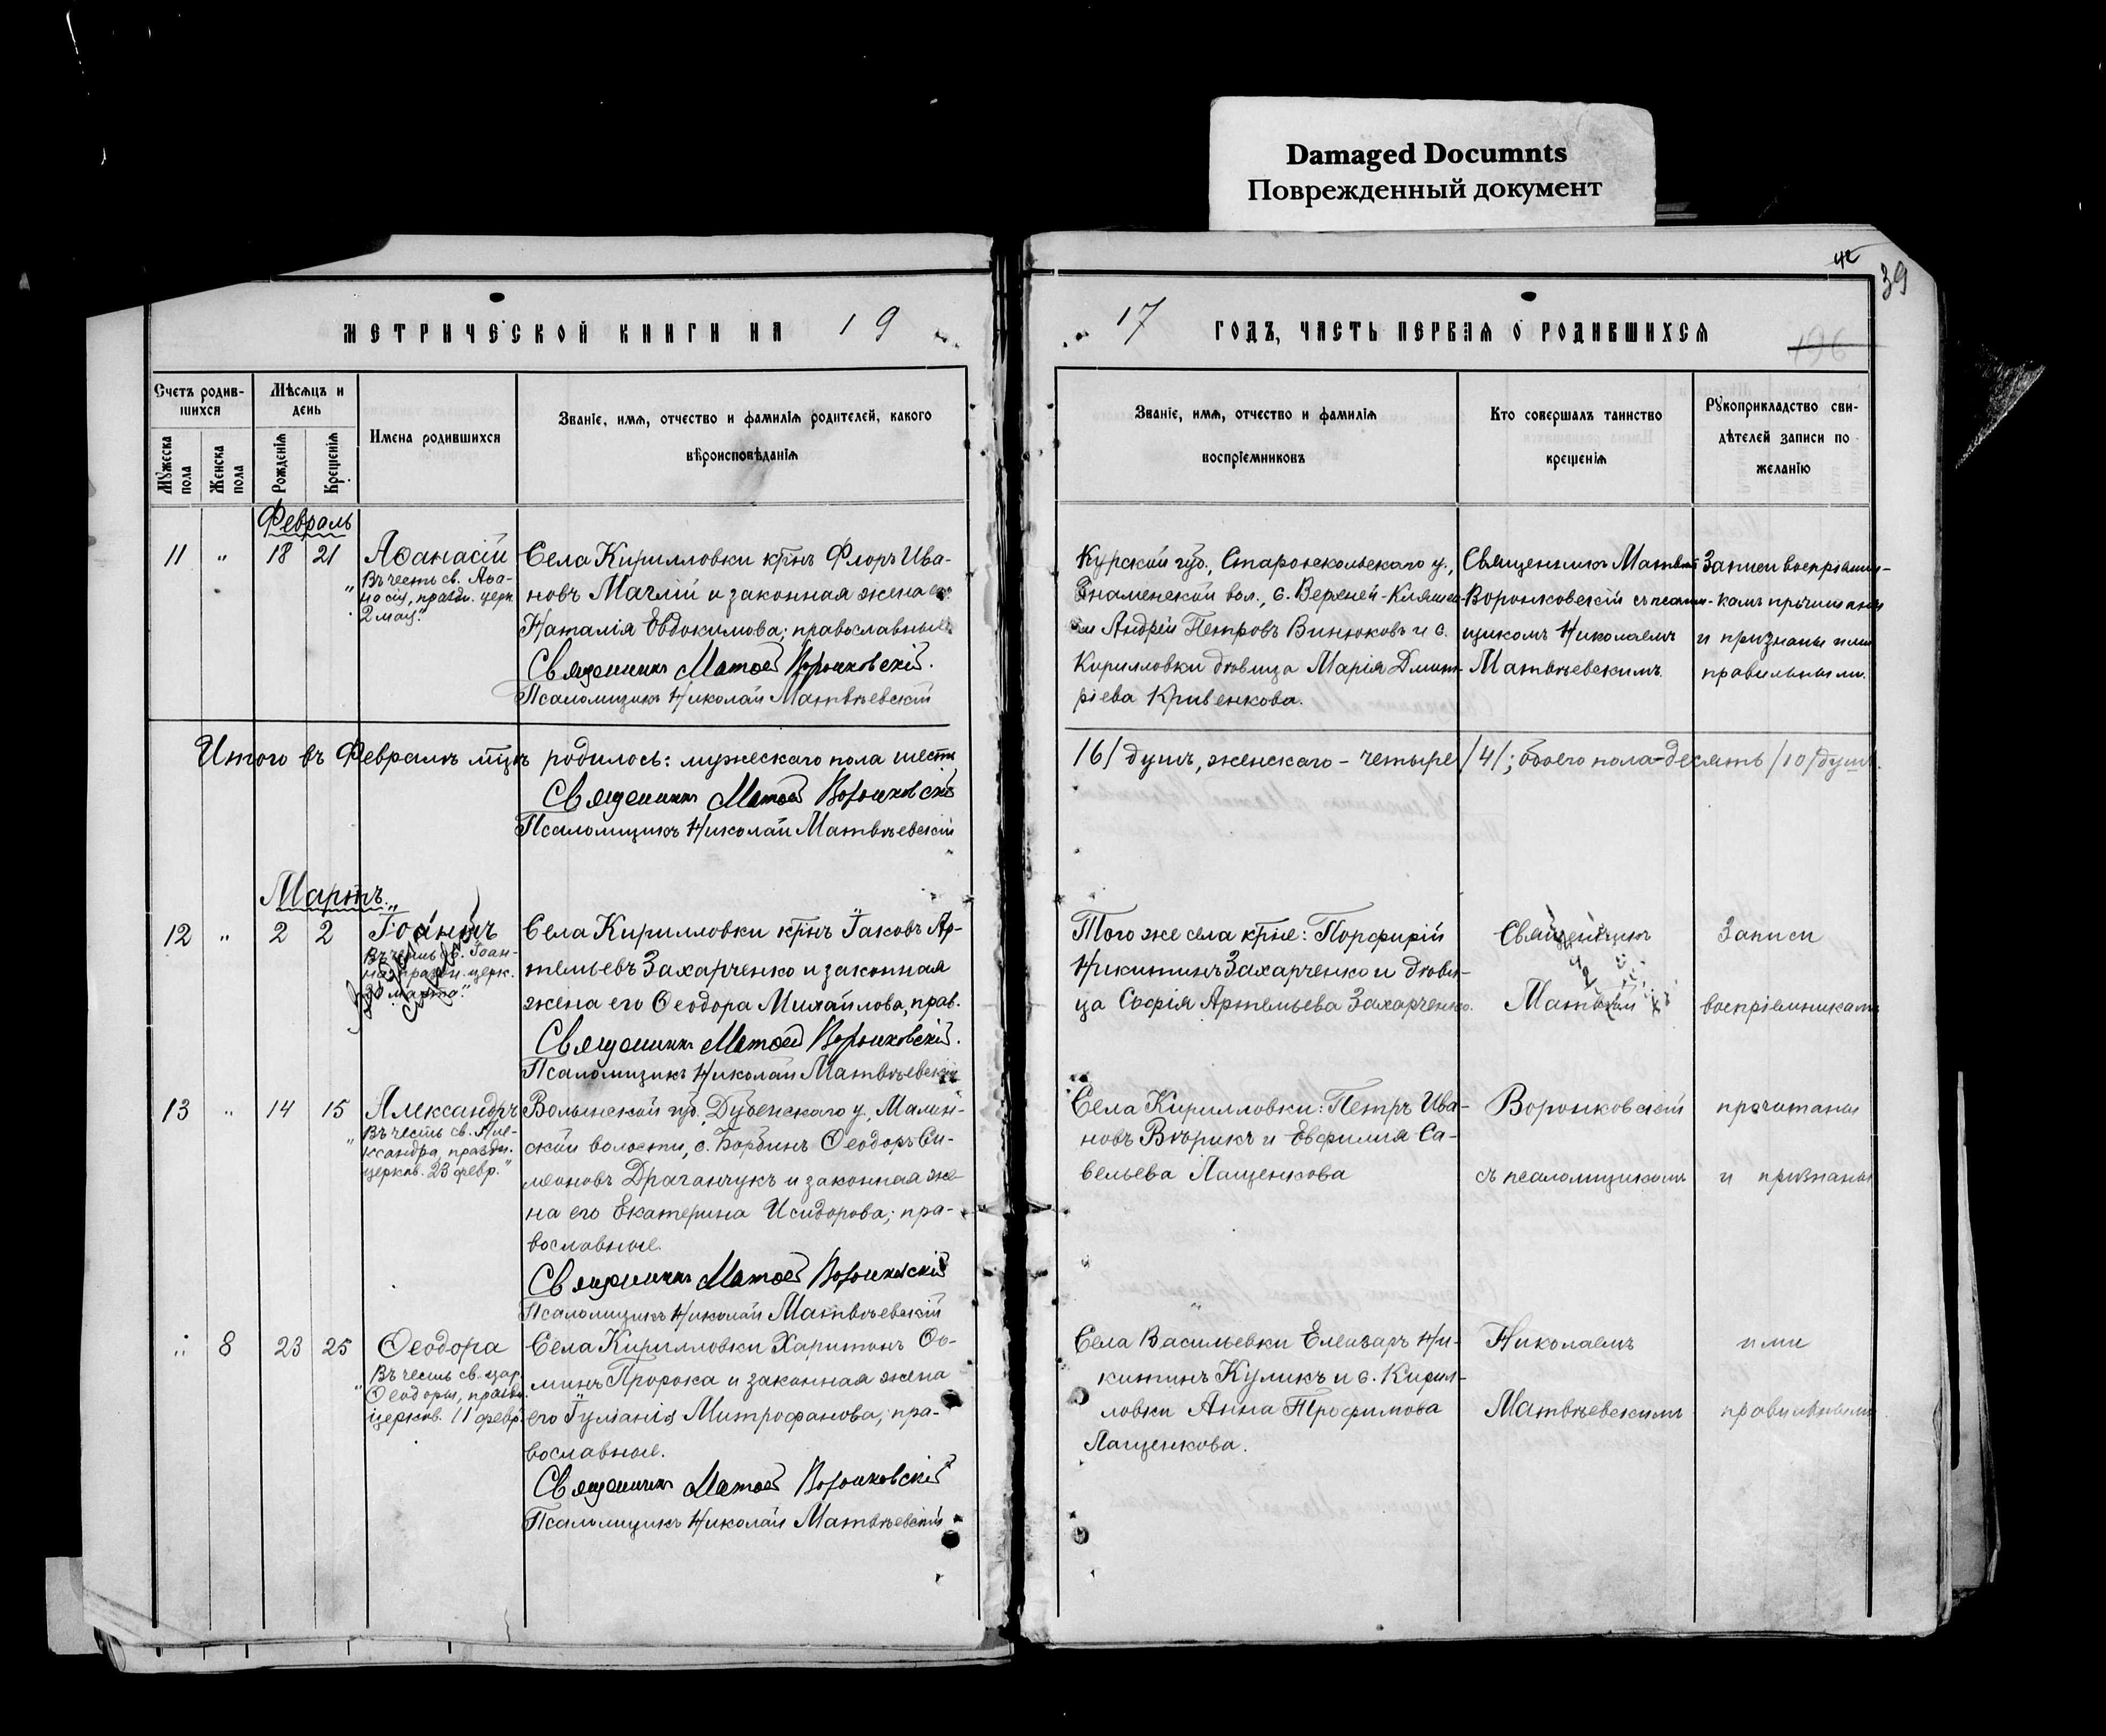 Damaged Documnts
Поврежденный документ
42
39
МЕТРИЧЕСКОЙ КНИГИ НА 19
17 ГОДЪ, ЧАСТЬ ПЕРВАЯ О РОДИВШИХСЯ
196
Счетъ родив-
шихся
Мѣсяцъ и
день
Мужеска
пола
Женска
пола
Рожденія
Крещенія
Имена родившихся
Званіе, имя, отчество и фамилія родителей, какого
вѣроисповѣданія
Званіе, имя, отчество и фамилія
воспріемниковъ
Кто совершалъ таинство
крещенія
Рукоприкладство сви-
дѣтелей записи по
желанію
Февраль
11 " 18 21 Аѳанасій
"Въ честь св. Аѳа-
насія, праздн. церк.
2 мая."
Села Кирилловки крнъ Флоръ Ива-
новъ Маглій и законная жена его
Наталія Евдокимова; православные.
Священникъ Матѳей Воронковскій.
Псаломщикъ Николай Матвѣевскій
Курской губ., Старооскольскаго у.,
Знаменской вол., с. Верхней-
Андрей Петровъ Винюковъ и с.
Кирилловки дѣвица Марія Димит-
ріева Кривенкова.
Священникъ Матѳей
Воронковскій съ псалом-
щикомъ Николаемъ
Матвѣевскимъ.
Записи воспріемни-
камъ прочитаны
и признаны ими
правильными.
Итого въ Февралѣ мцѣ родилось: мужескаго пола шесть
/6/ душъ, женскаго - четыре /4/; обоего пола - десять /10/ душъ.
Священникъ Матѳей Воронковскій
Псаломщикъ Николай Матвѣевскій
Мартъ.
12 " 2 2 Іоаннъ
"Въ честь св. Іоан-
на, праздн. церк.
30 марта."
Села Кирилловки крнъ Іаковъ Ар-
темьевъ Захарченко и законная
жена его Ѳеодора Михайлова, прав.
Священникъ Матѳей Воронковскій.
Псаломщикъ Николай Матвѣевскій
Того же села крне: Порфирій
Никитинъ Захарченко и дѣви-
ца Софія Артемьева Захарченко.
Священникъ
Матѳей
Записи
воспріемникамъ
13 " 14 15 Александръ
"Въ честь св. Але-
ксандра, праздн.
церков. 23 февр."
Волынской губ., Дубенскаго у., Малин-
ской волости, с. Борбинъ Ѳеодоръ Си-
меоновъ Драганчукъ и законная же-
на его Екатерина Исидорова; пра-
вославные.
Священникъ Матѳей Воронковскій
Псаломщикъ Николай Матвѣевскій
Села Кирилловки: Петръ Ива-
новъ Вторикъ и Евфимія Са-
вельева Лащенкова
Воронковскій
съ псаломщикомъ
прочитаны
и признаны
" 8 23 25 Ѳеодора
"Въ честь св. цар.
Ѳеодоры, праздн.
церков. 11 февр."
Села Кирилловки Харитонъ Ѳо-
минъ Пророка и законная жена
его Іуліанія Митрофанова; пра-
вославные.
Священникъ Матѳей Воронковскій
Псаломщикъ Николай Матвѣевскій
Села Васильевки Елеазаръ Ни-
китинъ Куликъ и с. Кирил-
ловки Анна Трофимова
Лащенкова.
Николаемъ
Матвѣевскимъ
ими
правильными